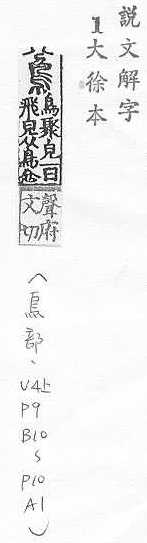 說文解字
1大徐本
鳻 鳥聚皃一曰
飛皃从鳥分
聲府
文切
(鳥部、V4上
P9
B10
~
P10
A1)